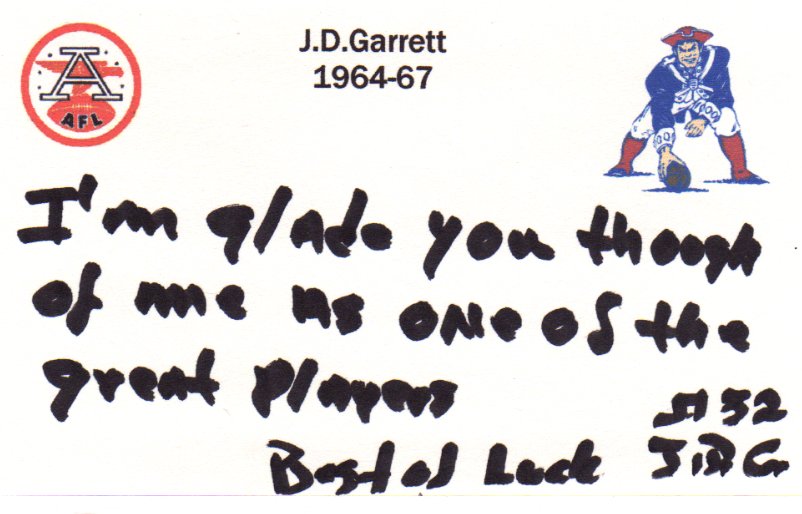 J.D.Garrett
1964-67
A
AFL
I'm glade you though
of me as one of the
great players
#32
Best of Luck J.D.G